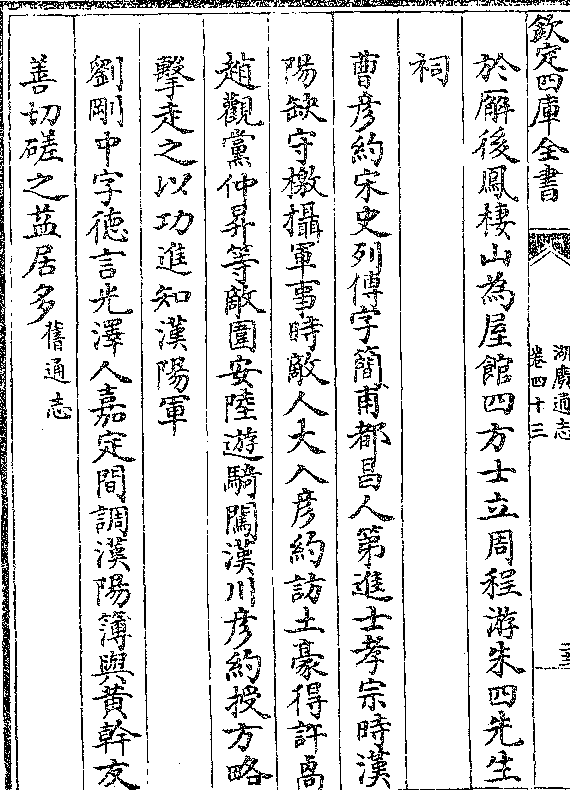 欽定四庫全書
湖廣通志
卷四十三
於廨後鳳棲山為屋館四方士立周程游朱四先生
祠
曹彥約宋史列傳字簡甫都昌人第進士孝宗時漢
陽缺守檄攝軍事時敵人大入彥約訪土豪得許卨
趙觀黨仲昇等敵圍安陸遊騎闖漢川彥約授方略
擊走之以功進知漢陽軍
劉剛中字徳言光澤人嘉定間調漢陽簿與黃幹友
善切磋之益居多舊通志